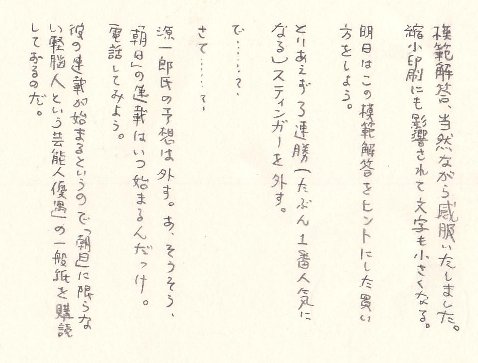 模範解答、当然ながら感服いたしました。
縮小印刷にも影響されて文字も小さくなる。
明日はこの模範解答をヒントにした買い
方をしよう。
とりあえず3連勝(たぶん1番人気に
なる)スティンガーを外す。
で……?
さて……?
源一郎氏の予想は外す。あ、そうそう、
「朝日」の連載はいつ始まるんだっけ。
電話してみよう。
彼の連載が始まるというので「朝日」に限らな
い軽脳人という芸能人優遇」の一般紙を購読
しておるのだ。